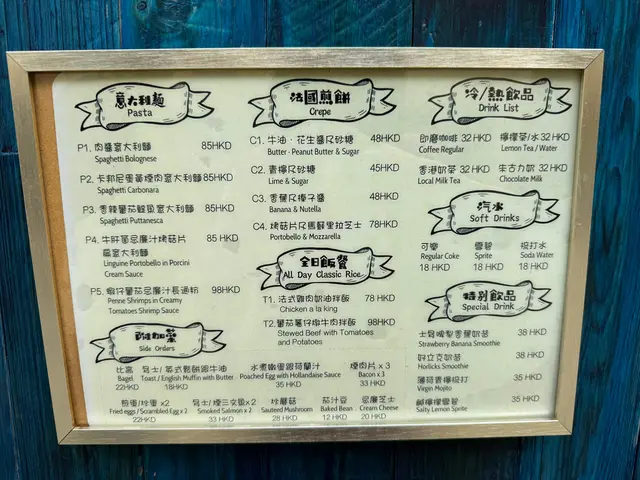 意大利麵
Pasta
P1. 肉醬意大利麵 85HKD
Spaghetti Bolognese
P2. 卡邦尼蛋黃煙肉意大利麵 85HKD
Spaghetti Carbonara
P3. 香辣番茄鯷魚意大利麵 85HKD
Spaghetti Puttanesca
P4. 牛肝菌忌廉汁烤菇片 85 HKD
扁意大利麵
Linguine Portobello in Porcini
Cream Sauce
P5. 蝦仔番茄忌廉汁長通粉 98HKD
Penne Shrimps in Creamy
Tomatoes Shrimp Sauce
法國煎餅
Crepe
C1. 牛油、花生醬及砂糖 48HKD
Butter · Peanut Butter & Sugar
C2. 青檸及砂糖 45HKD
Lime & Sugar
C3. 香蕉及榛子醬 48HKD
Banana & Nutella
C4. 烤菇片及馬蘇里拉芝士 78HKD
Portobello & Mozzarella
全日飯餐
All Day Classic Rice
T1. 法式雞肉奶油拌飯 78 HKD
Chicken a la king
T2. 番茄薯仔燉牛肉拌飯 98HKD
Stewed Beef with Tomatoes
and Potatoes
冷/熱飲品
Drink List
即磨咖啡 32 HKD 檸檬茶/水 32 HKD
Coffee Regular Lemon Tea / Water
香港奶茶 32 HKD 朱古力奶 32 HKD
Local Milk Tea Chocolate Milk
汽水
Soft Drinks
可樂 雪碧 梳打水
Regular Coke Sprite Soda Water
18 HKD 18 HKD 18 HKD
特別飲品
Special Drink
士多啤梨香蕉奶昔 38 HKD
Strawberry Banana Smoothie
好立克奶昔 38 HKD
Horlicks Smoothie
薄荷青檸梳打 35 HKD
Virgin Mojito
鹹檸檬雪碧 35 HKD
Salty Lemon Sprite
Side Orders
比高 多士/英式鬆餅跟牛油 水煮嫩蛋跟荷蘭汁 煙肉片 x 3
Bagel Toast / English Muffin with Butter Poached Egg with Hollandaise Sauce Bacon x 3
22HKD 18HKD 35 HKD 33 HKD
煎蛋/炒蛋 x2 多士/煙三文魚x2 炒蘑菇 茄汁豆 忌廉芝士
Fried eggs / Scrambled Egg x 2 Smoked Salmon x 2 Sauteed Mushroom Baked Bean Cream Cheese
22HKD 33 HKD 28 HKD 12 HKD 20 HKD